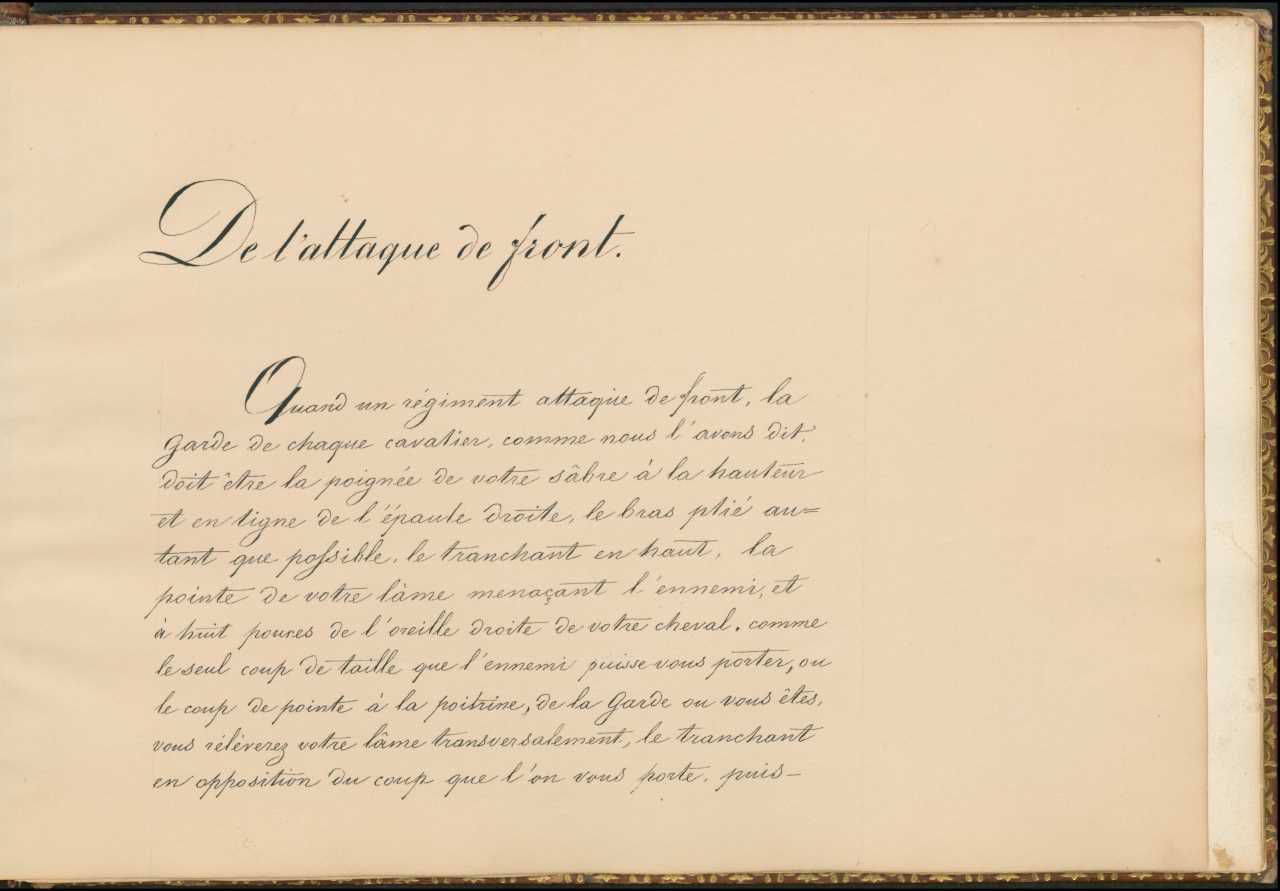 De l'attaque de front.
Quand un régiment attaque de front, la
Garde de chaque cavalier, comme nous l'avons dit,
doit être la poignée de votre sâbre à la hauteur
et en ligne de l'épaule droite, le bras plié au=
tant que possible, le tranchant en haut, la
pointe de votre lâme menaçant l'ennemi, et
à huit pouces de l'oreille droite de votre cheval, comme
le seul coup de taille que l'ennemi puisse vous porter, ou
le coup de pointe à la poitrine, de la Garde ou vous êtes,
vous réléverez votre lâme transversalement, le tranchant
en opposition du coup que l'on vous porte, puis-